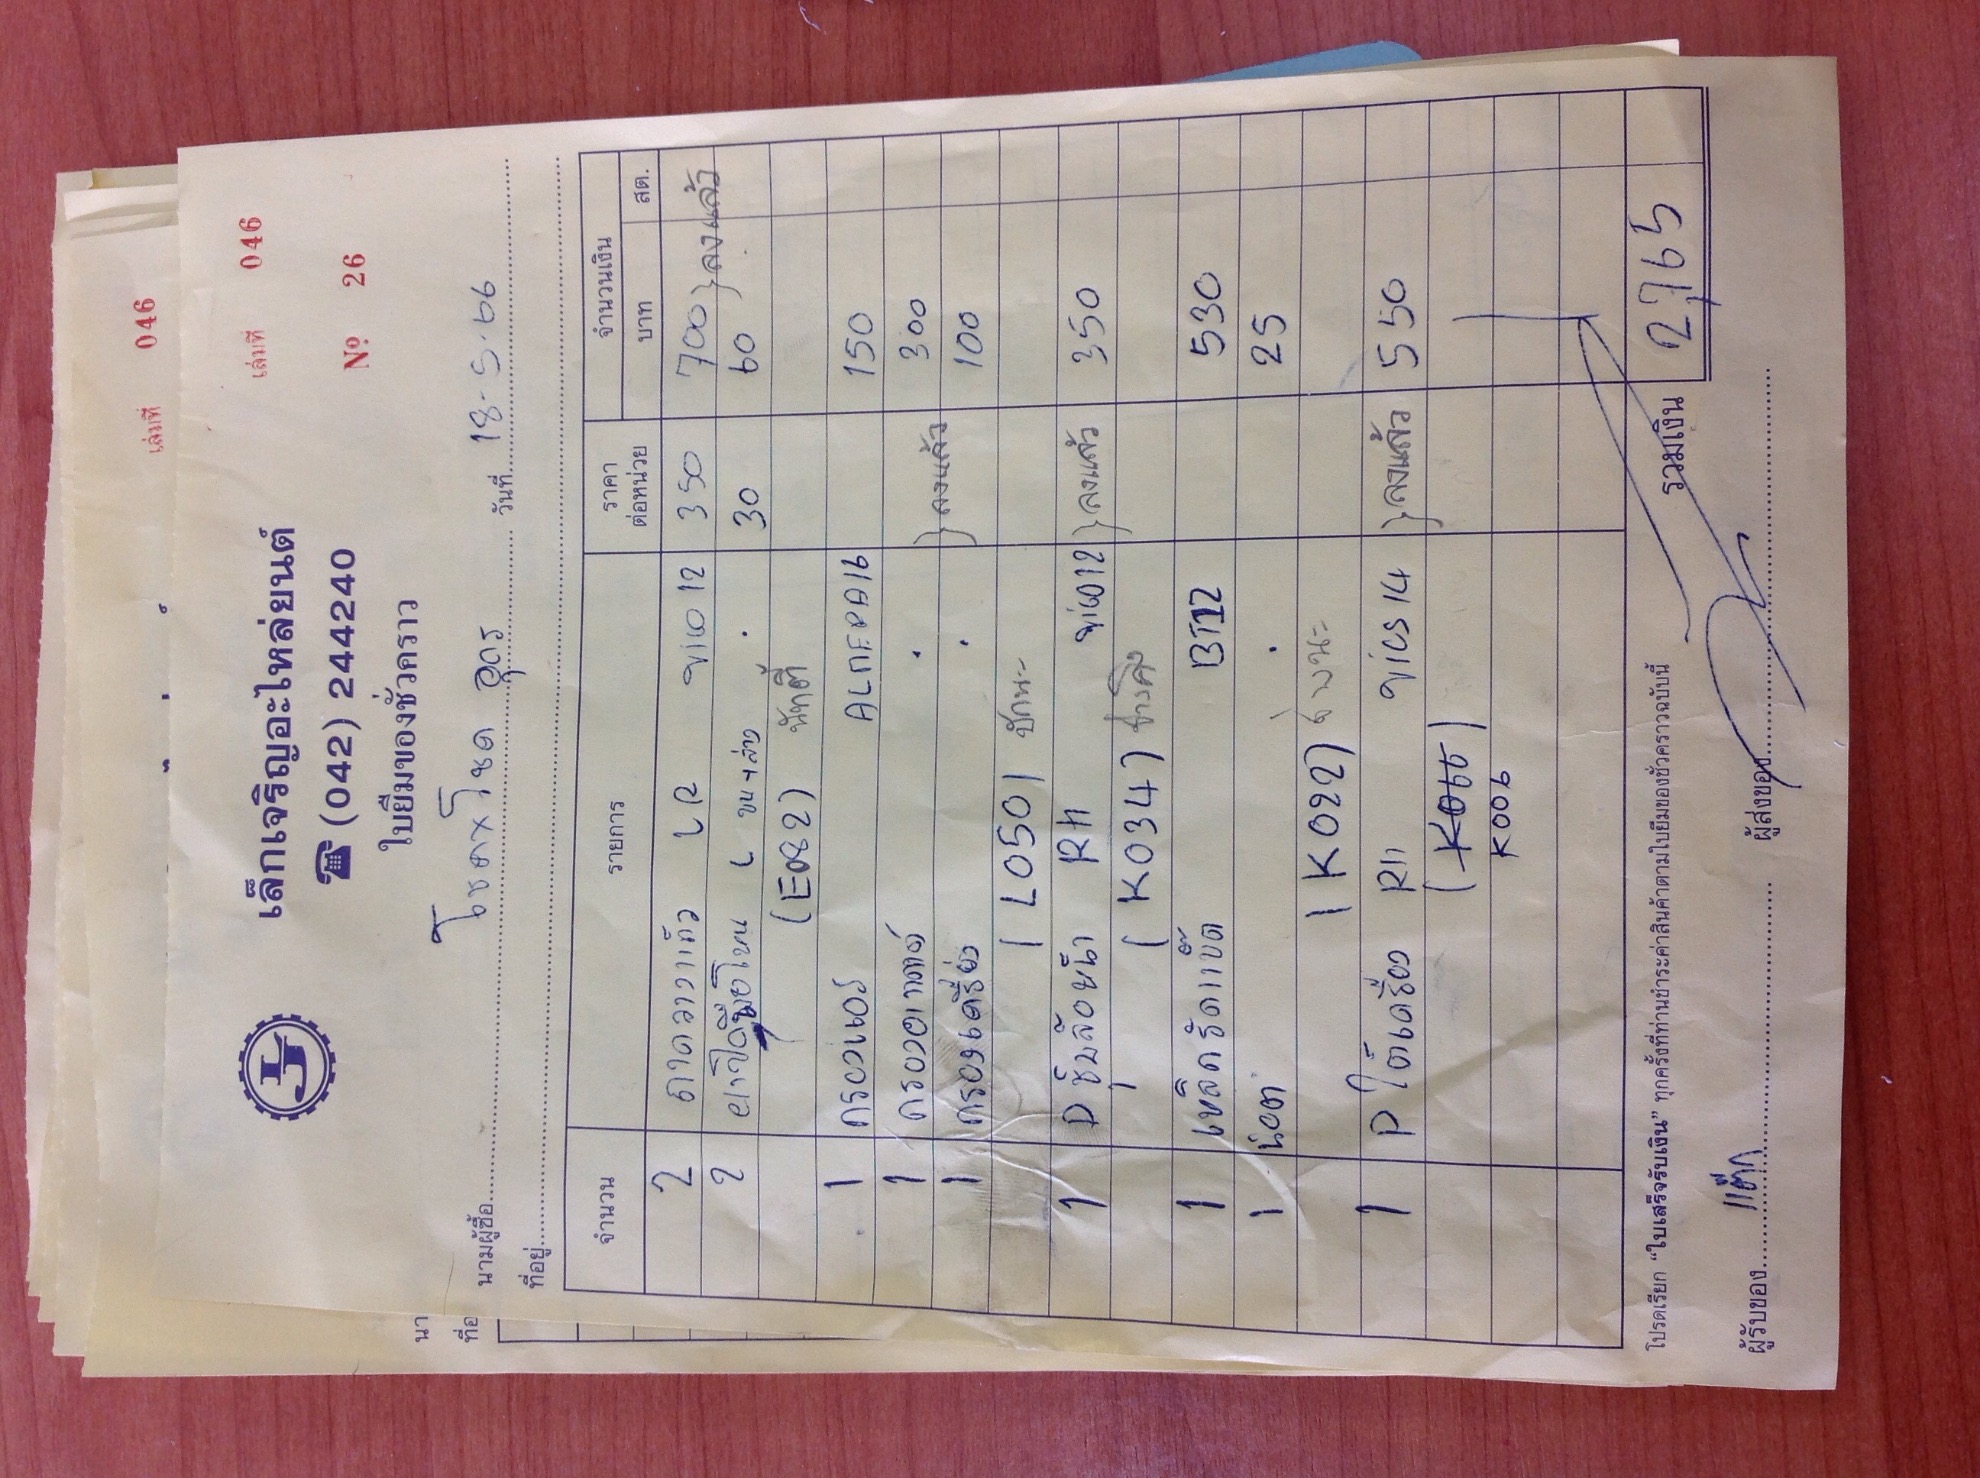 เล่มที่ 046
เล่มที่ 046
№ 26
เล็กเจริญอะไหล่ยนต์
☎ (042) 244240
ใบยืมของชั่วคราว
นามผู้ซื้อ โชคxโชค อุดร วันที่ 18-5-66
ที่อยู่
จำนวน รายการ ราคาต่อหน่วย จำนวนเงิน บาท สต.
2 LR วีโก 12 350 700 } ลงแล้ว
2 L บน+ล่าง . 30 60
(E082)
1 กรองแอร์ 150
1 . 300 } ลงแล้ว
1 กรองเครื่อง . 100
(L050)
1 P ซุ้มล้อหน้า RH วีโก12 } ลงแล้ว 350
(K034)
1 เหล็กรัดแบ็ต BT12 530
1 น็อต . 25
(K022)
1 P ใต้เครื่อง RH วีออส 14 } ลงแล้ว 550
K006
รวมเงิน 2,765
โปรดเรียก "ใบเสร็จรับเงิน" ทุกครั้งที่ท่านชำระค่าสินค้าตามใบยืมของชั่วคราวฉบับนี้
ผู้รับของ ผู้ส่งของ